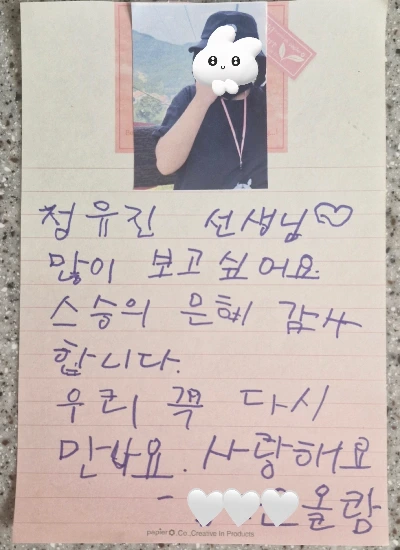 정유진 선생님♡
많이 보고싶어요.
스승의 은혜 감사
합니다.
우리 꼭 다시
만나요. 사랑해요
- 올람
papier O. Co.,Creative In Products